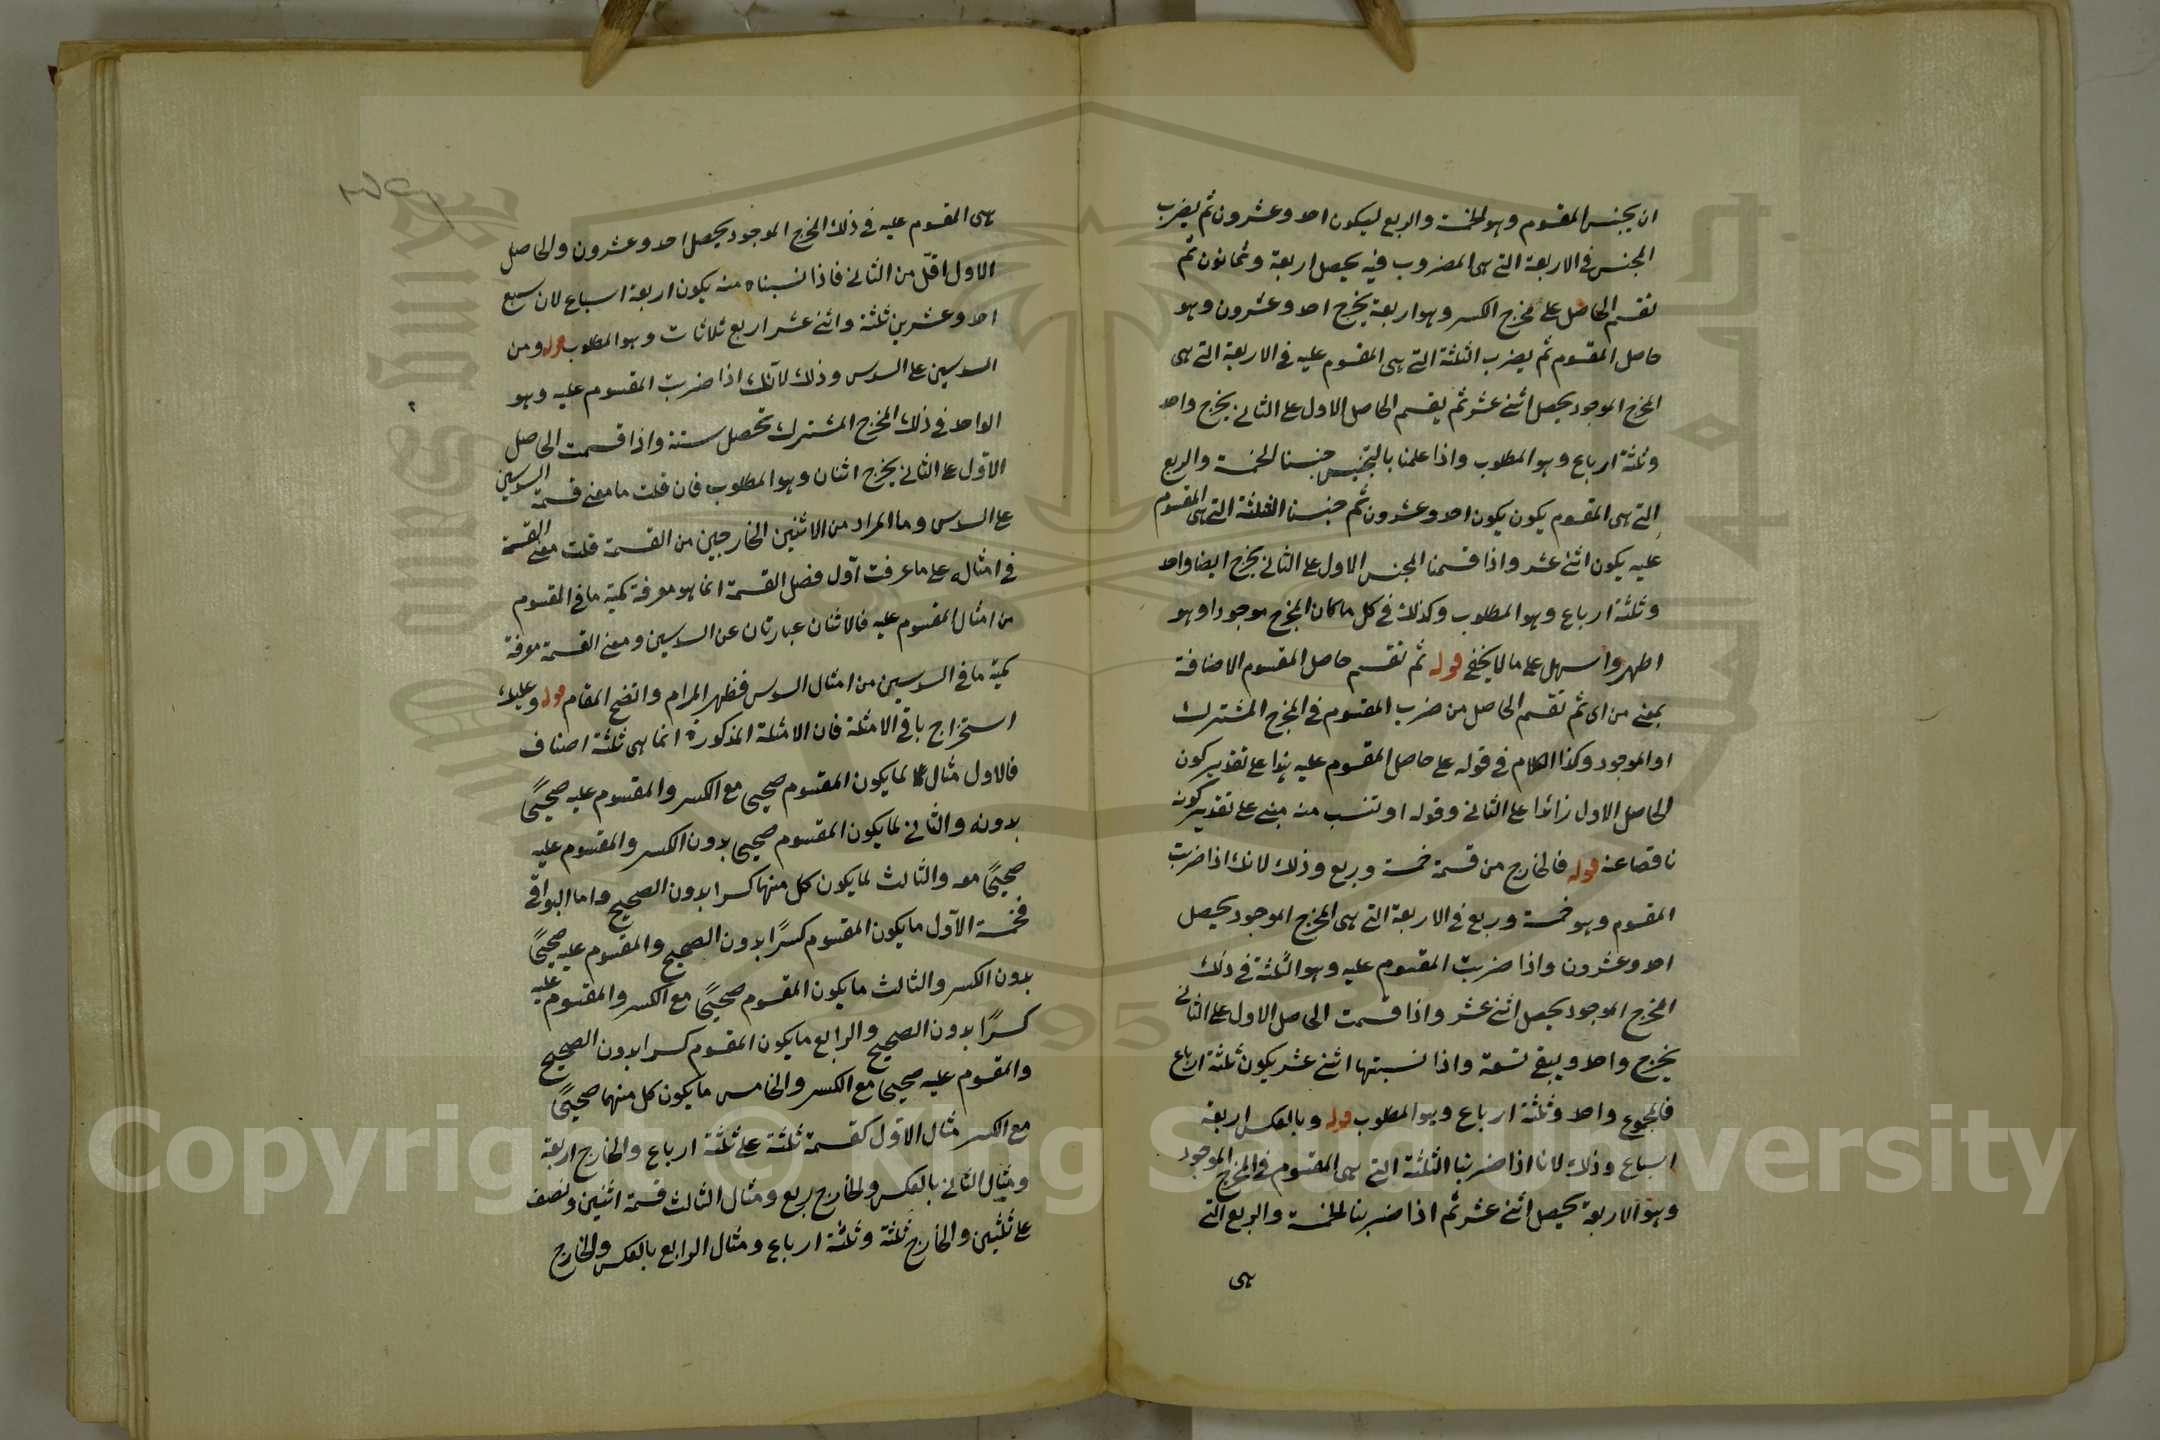 ان يجنس المقسوم وهو الخمسة والربع ليكون احد وعشرون ثم يضرب
المجنس فى الاربعة التى هى المضروب فيه يحصل اربعة وثمانون ثم
نقسم الحاصل على مخرج الكسر وهو اربعة يخرج احد وعشرون وهو
حاصل المقسوم ثم يضرب الثلثة التى هى المقسوم عليه فى الاربعة التى هى
المخرج الموجود يحصل اثنى عشر ثم يقسم الحاصل الاول على الثانى يخرج واحد
وثلثة ارباع وهو المطلوب واذا علمنا بالتجنيس جنسنا الخمسة والربع
التى هى المقسوم يكون يكون احد وعشرون ثم جنسنا الثلثة التى هى المقسوم
عليه يكون اثنى عشر واذا قسمنا المجنس الاول على الثانى يخرج ايضا واحد
وثلثة ارباع وهو المطلوب وكذلك فى كل ما كان المخرج موجودا وهو
اظهر واسهل على ما لا يخفى قوله ثم نقسم حاصل المقسوم الاضافة
بمعنى من اى ثم نقسم الحاصل من ضرب المقسوم فى المخرج المشترك
او الموجود وكذا الكلام فى قوله على حاصل المقسوم عليه هذا على تقدير كون
الحاصل الاول زائدا على الثانى وقوله او تنسب منه مبنى على تقدير كونه
ناقصا عنه قوله فالخارج من قسمة خمسة وربع وذلك لانك اذا ضربت
المقسوم وهو خمسة وربع فى الاربعة التى هى المخرج الموجود يحصل
احد وعشرون واذا ضربت المقسوم عليه وهو الثلثة فى ذلك
المخرج الموجود يحصل اثنى عشر واذا قسمت الحاصل الاول على الثانى
يخرج واحد ويبقى تسعة واذا نسبتها اثنى عشر يكون ثلثة ارباع
فالمجموع واحد وثلثة ارباع وهو المطلوب قوله وبالعكس اربعة
اسباع وذلك لانا اذا ضربنا الثلثة التى هى المقسوم فى المخرج الموجود
وهو الاربعة يحصل اثنى عشر ثم اذا ضربنا الخمسة والربع التى
هى
هى المقسوم عليه فى ذلك المخرج الموجود يحصل احد وعشرون والحاصل
الاول اقل من الثانى فاذا نسبناه منه يكون اربعة اسباع لان سبع
احد وعشرين ثلثة واثنى عشر اربع ثلاثات وهو المطلوب قوله ومن
السدسين على السدس وذلك لانك اذا ضربت المقسوم عليه وهو
الواحد فى ذلك المخرج المشترك تحصل ستة واذا قسمت الحاصل
الاول على الثانى يخرج اثنان وهو المطلوب فان قلت ما معنى قسمة السدسين
على السدس وما المراد من الاثنين الخارجين من القسمة قلت معنى القسمة
فى امثاله على ما عرفت اول فصل القسمة انما هو معرفة كمية ما فى المقسوم
من امثال المقسوم عليه فالاثنان عبارتان عن السدسين ومعنى القسمة معرفة
كمية ما فى السدسين من امثال السدس فظهر المرام واتضح المقام قوله وعليك
استخراج باقى الامثلة فان الامثلة المذكورة انما هى ثلثة اصناف
فالاول مثال لما يكون المقسوم صحيحا مع الكسر والمقسوم عليه صحيحًا
بدونه والثانى لما يكون المقسوم صحيحا بدون الكسر والمقسوم عليه
صحيحًا معه والثالث لما يكون كل منهما كسرا بدون الصحيح واما البواقى
فخمسة الاول ما يكون المقسوم كسرًا بدون الصحيح والمقسوم عليه صحيحًا
بدون الكسر والثالث ما يكون المقسوم صحيحًا مع الكسر والمقسوم عليه
كسرًا بدون الصحيح والرابع ما يكون المقسوم كسرا بدون الصحيح
والمقسوم عليه صحيحا مع الكسر والخامس ما يكون كل منهما صحيحًا
مع الكسر مثال الاول كقسمة ثلثة على ثلثة ارباع والخارج اربعة
ومثال الثانى بالعكس والخارج ربع ومثال الثالث قسمة اثنين ونصف
على ثلثين والخارج ثلثة وثلثة ارباع ومثال الرابع بالعكس والخارج
Copyright © King Saud University